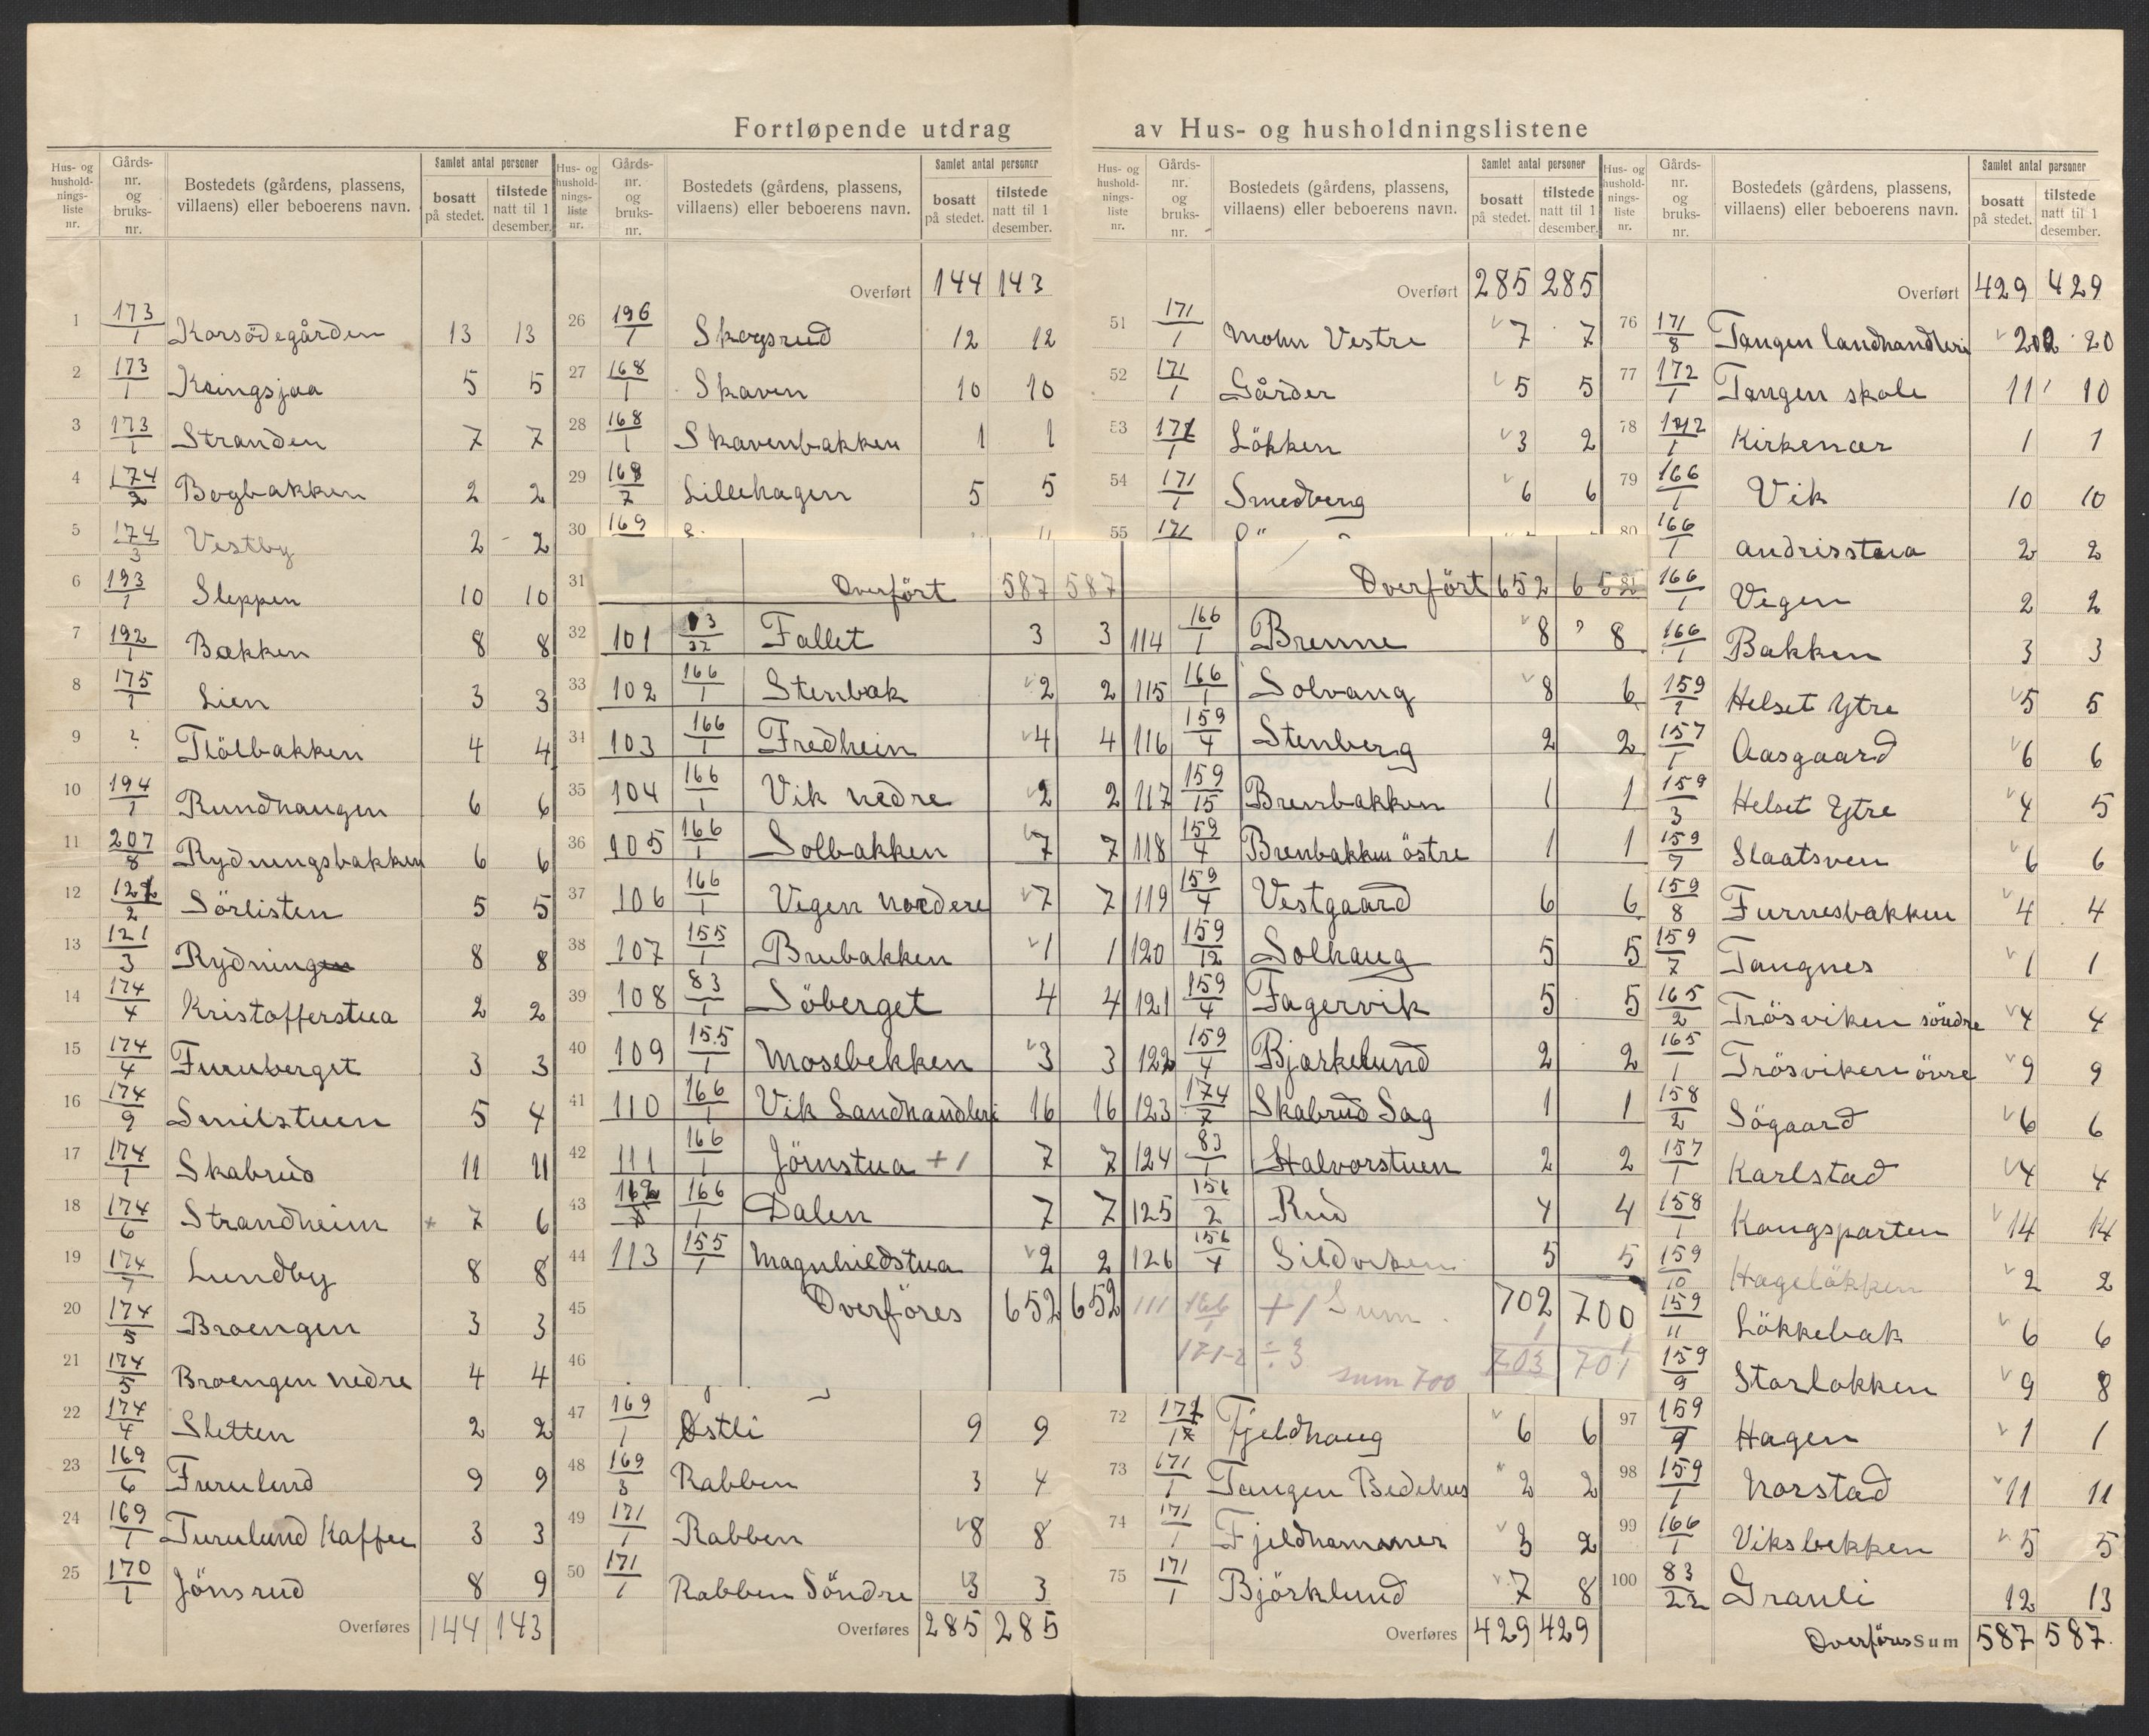 Fortløpende utdrag av Hus- og husholdningslistene
Hus- og husholdnings-liste nr. | Gårds-nr. og bruks-nr. | Bostedets (gårdens, plassens, villaens) eller beboerens navn. | Samlet antal personer: bosatt på stedet. | tilstede natt til 1 desember.
1 173/1 Korsödegården 13 13
2 173/1 Kringsjaa 5 5
3 173/1 Stranden 7 7
4 174/2 Bogbakken 2 2
5 174/3 Vestby 2 2
6 193/1 Sleppen 10 10
7 192/1 Bakken 8 8
8 175/1 Lien 3 3
9 ? Tlölbakken 4 4
10 194/1 Rundhaugen 6 6
11 207/8 Rydningsbakken 6 6
12 121/2 Sörlisten 5 5
13 121/3 Rydningen 8 8
14 174/4 Kristofferstua 2 2
15 174/4 Furuberget 3 3
16 174/9 Smilstuen 5 4
17 174/1 Skabrud 11 11
18 174/6 Strandheim + 7 6
19 174/7 Lundby 8 8
20 174/5 Broengen 3 3
21 174/5 Broengen nedre 4 4
22 174/4 Sletten 2 2
23 169/6 Furulund 9 9
24 169/1 Furulund Kaffee 3 3
25 170/1 Jönsrud 8 9
Overføres 144 143
Hus- og husholdnings-liste nr. | Gårds-nr. og bruks-nr. | Bostedets (gårdens, plassens, villaens) eller beboerens navn. | Samlet antal personer: bosatt på stedet. | tilstede natt til 1 desember.
Overført 144 143
26 196/1 Skogsrud 12 12
27 168/1 Skaven 10 10
28 168/1 Skavenbakken 1 1
29 168/7 Lillehagen 5 5
30 169
31
32
33
34
35
36
37
38
39
40
41
42
43
44
45
46
47 169/1 Østli 9 9
48 169/3 Rabben 3 4
49 171/1 Rabben 8 8
50 171/1 Rabben Söndre 3 3
Overføres 285 285
Overfört 587 587
101 83/32 Fallet 3 3
102 166/1 Stenbak 2 2
103 166/1 Fredheim 4 4
104 166/1 Vik nedre 2 2
105 166/1 Solbakken 7 7
106 166/1 Vegen nordere 7 7
107 155/1 Brubakken 1 1
108 83/1 Söberget 4 4
109 155/1 Mosebekken 3 3
110 166/1 Vik Landhandleri 16 16
111 166/1 Jörnstua +1 7 7
166/1 Dalen 7 7
113 155/1 Magnhildstua 2 2
Overföres 652 652
Overfört 652 652
114 166/1 Brenne 8 8
115 166/1 Solvang 8 6
116 159/4 Stenberg 2 2
117 159/15 Brenbakken 1 1
118 159/4 Brenbakken östre 1 1
119 159/4 Vestgaard 6 6
120 159/12 Solhaug 5 5
121 159/4 Fagervik 5 5
122 159/4 Bjørkelund 2 2
123 174/7 Skabrud Sag 1 1
124 83/1 Halvorstuen 2 2
125 156/2 Rud 4 4
126 156/4 Sildviken 5 5
111 166/1 +1 Sum 702 700
1 1
171-2 ÷3 703 701
sum 700
Hus- og husholdnings-liste nr. | Gårds-nr. og bruks-nr. | Bostedets (gårdens, plassens, villaens) eller beboerens navn. | Samlet antal personer: bosatt på stedet. | tilstede natt til 1 desember.
Overført 285 285
51 171/1 Mohn Vestre 7 7
52 171/1 Gårder 5 5
53 171/1 Lökken 3 2
54 171/1 Smedberg 6 6
55 171
72 171/1 Fjeldhaug 6 6
73 171/1 Tangen Bedehus 2 2
74 171/1 Fjeldhammer 3 2
75 171/1 Björklund 7 8
Overføres 429 429
Hus- og husholdnings-liste nr. | Gårds-nr. og bruks-nr. | Bostedets (gårdens, plassens, villaens) eller beboerens navn. | Samlet antal personer: bosatt på stedet. | tilstede natt til 1 desember.
Overført 429 429
76 171/8 Tangen landhandleri 20 20
77 172/1 Tangen skole 11 10
78 Kirkenær 1 1
79 166/1 Vik 10 10
80 166/1 Andrisstua 2 2
81 166/1 Vegen 2 2
166/1 Bakken 3 3
159/1 Helset Ytre 5 5
157/1 Aasgaard 6 6
159/3 Helset Ytre 4 5
159/7 Slaatsven 6 6
159/8 Furnesbakken 4 4
159/7 Tangnes 1 1
165/2 Trösviken söndre 4 4
165/1 Trösviken övre 9 9
158/2 Sögaard 6 6
157/1 Karlstad 4 4
158/1 Kongsparten 14 14
159/10 Hagelökken 2 2
159/11 Lökkebak 6 6
159/9 Storlokken 9 8
97 159/9 Hagen 1 1
98 159/1 Norstad 11 11
99 166/1 Viksbekken 5 5
100 83/22 Granli 12 13
Overföres Sum 587 587